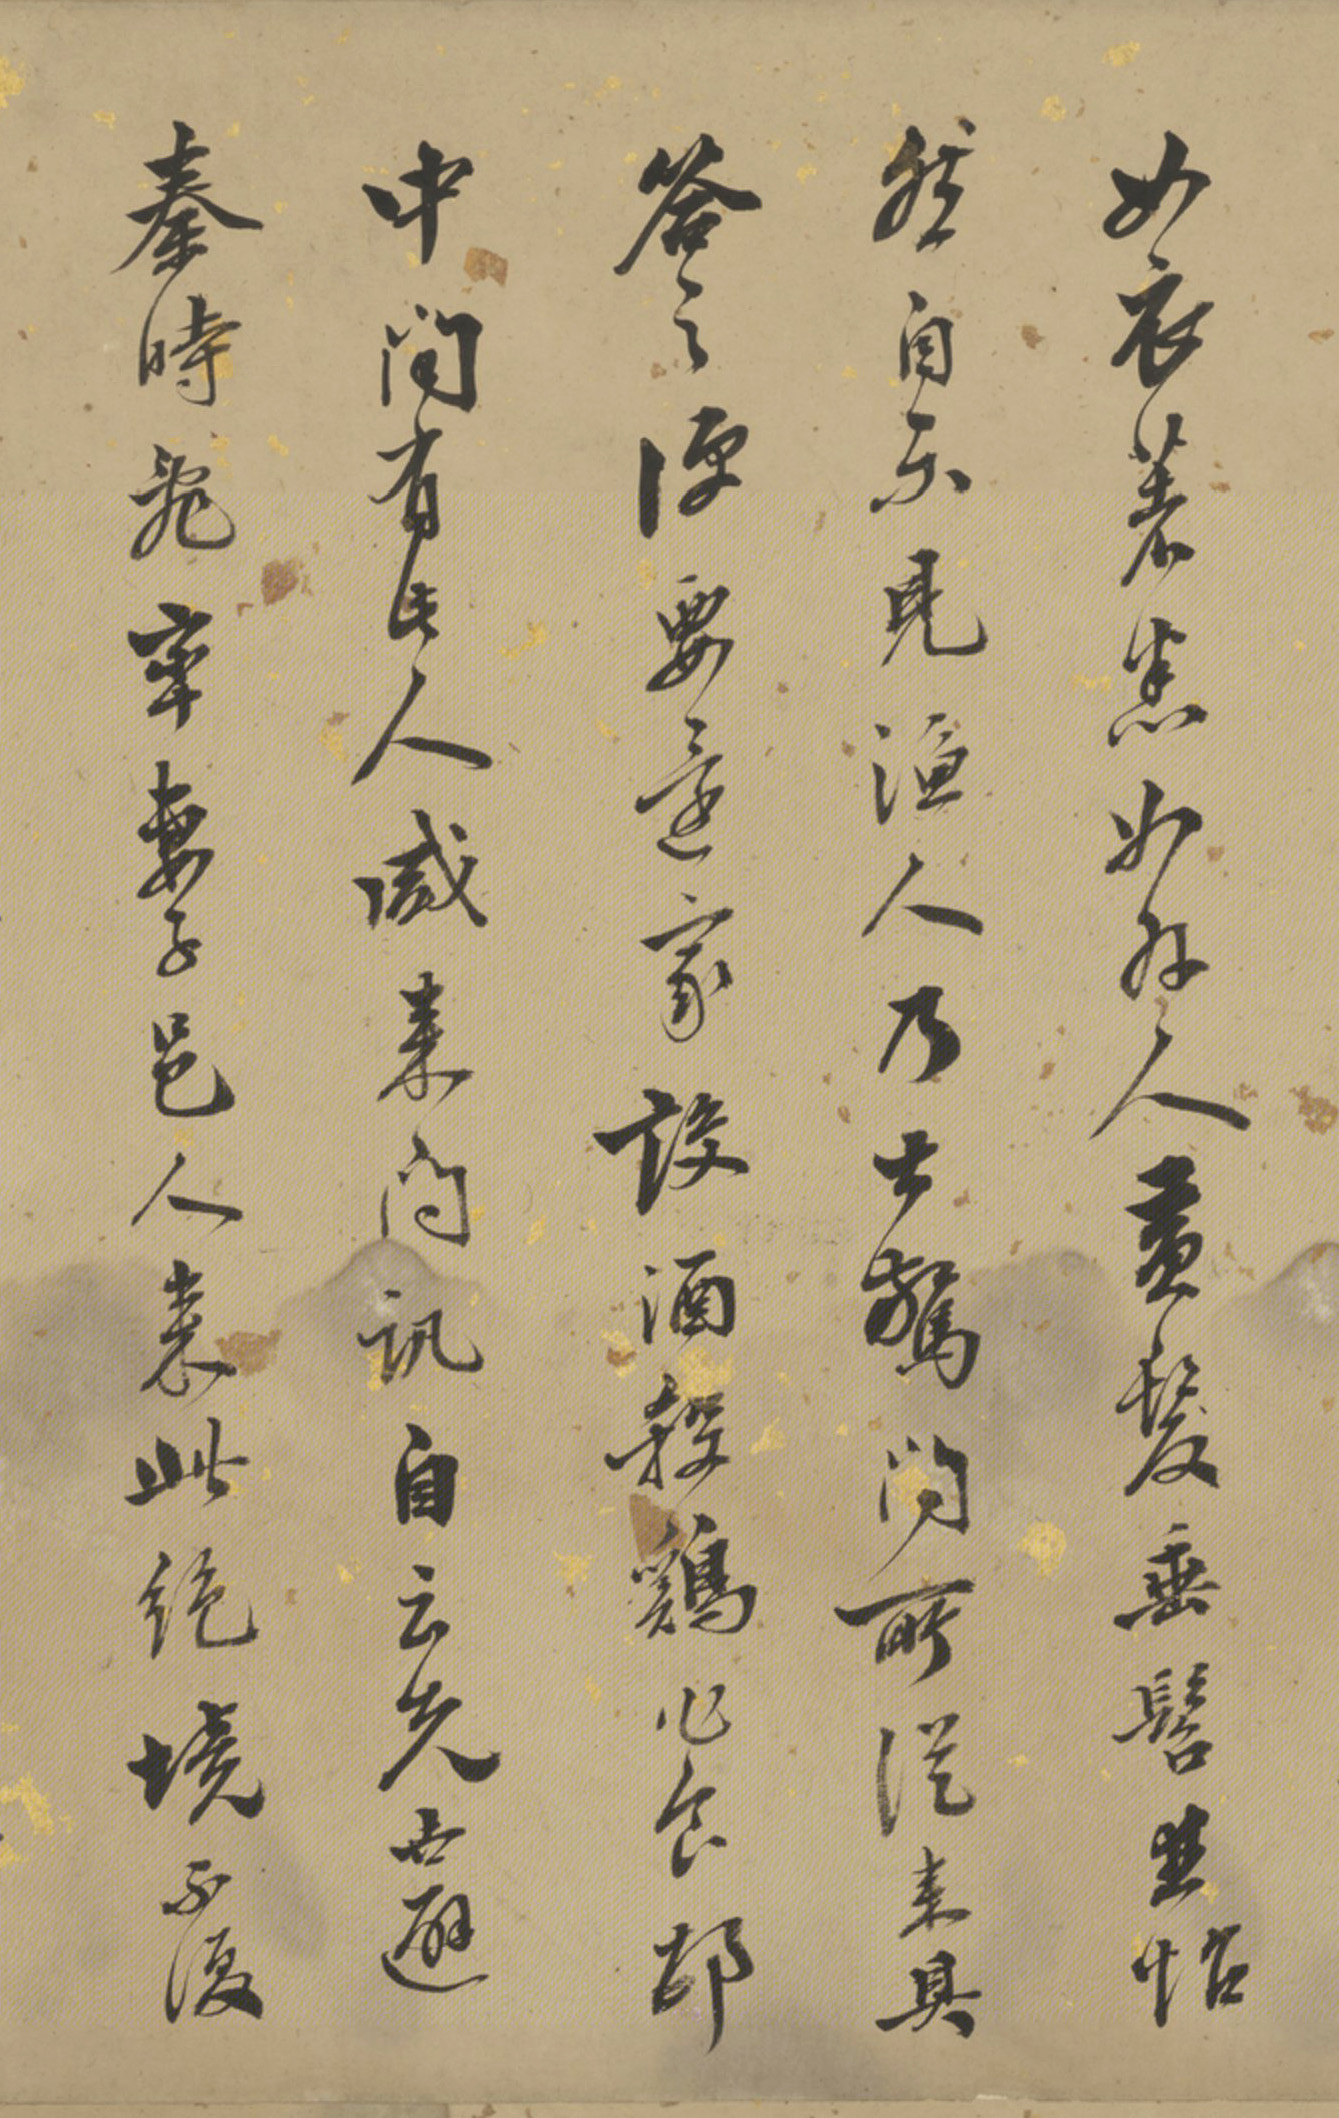 女衣著悉如外人黃髮垂髫並怡
然自樂見漁人乃大驚問所從來具
答之便要還家設酒殺鷄作食邨
中聞有此人咸來問訊自云先世避
秦時亂率妻子邑人來此絕境不復